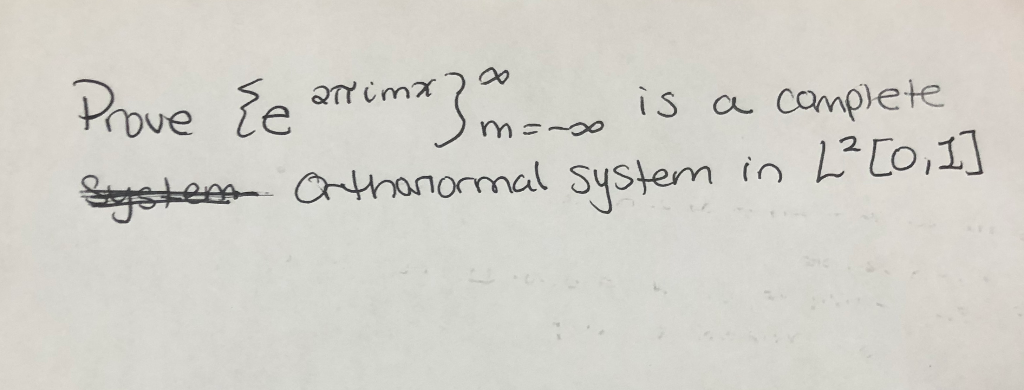 Prove {e^{2πimx}}_{m=-∞}^{∞} is a complete
system orthonormal system in L²[0,1]